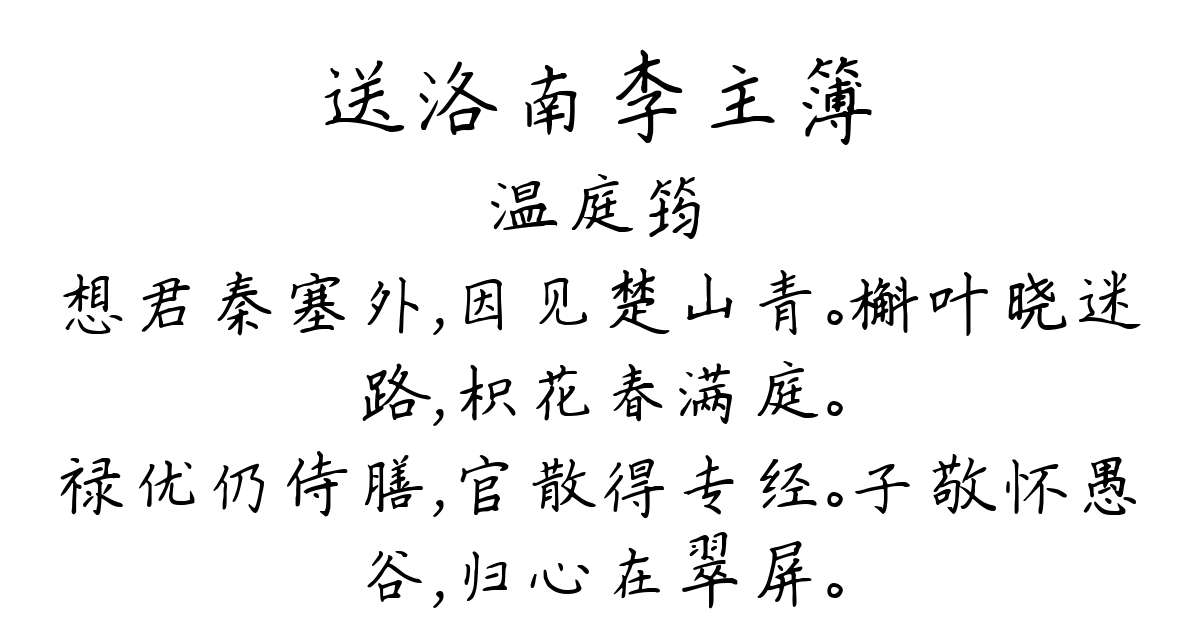 送洛南李主簿
温庭筠
想君秦塞外,因见楚山青。槲叶晓迷
路,枳花春满庭。
禄优仍侍膳,官散得专经。子敬怀愚
谷,归心在翠屏。